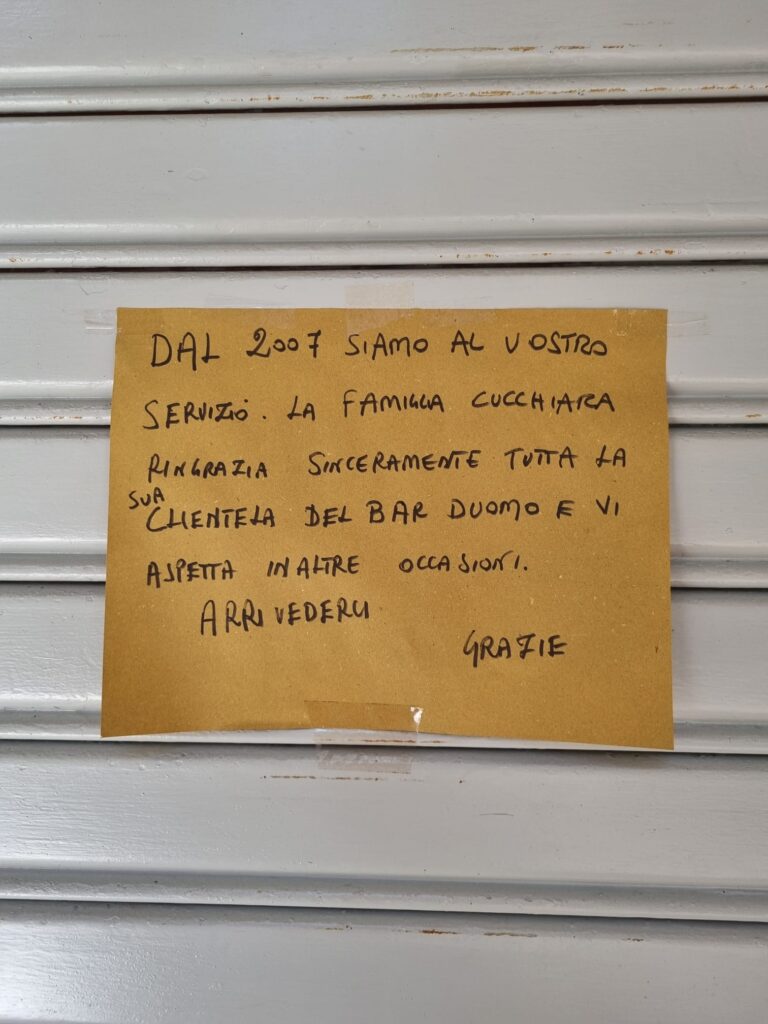 DAL 2007 SIAMO AL VOSTRO
SERVIZIO. LA FAMIGLIA CUCCHIARA
RINGRAZIA SINCERAMENTE TUTTA LA
SUA
CLIENTELA DEL BAR DUOMO E VI
ASPETTA IN ALTRE OCCASIONI.
ARRIVEDERCI
GRAZIE